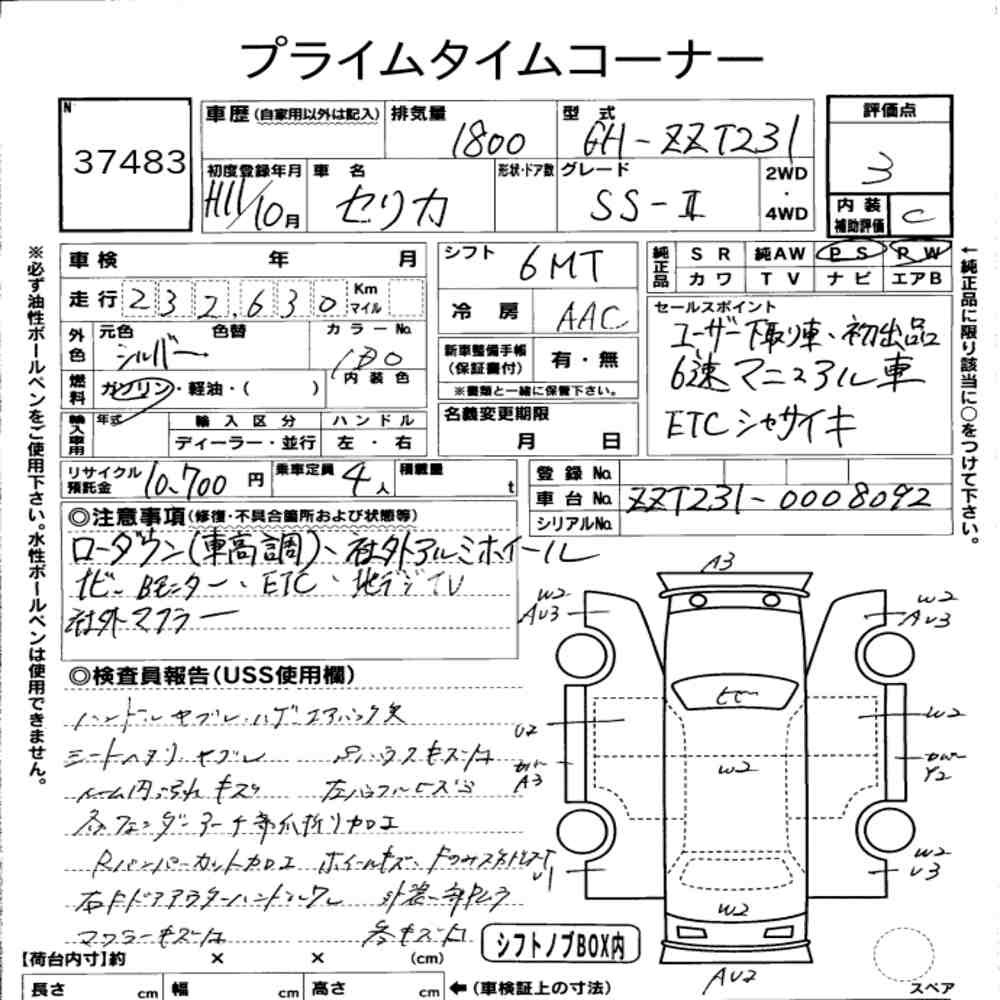 プライムタイムコーナー
N
37483
車歴(自家用以外は記入)
排気量
1800
型式
GH-ZZT231
評価点
3
初度登録年月
H11/10月
車名
セリカ
形状・ドア数
グレード
SS-Ⅱ
2WD
・
4WD
内装
補助評価
C
車検 年 月
シフト
6MT
純正品
SR 純AW PS PW
カワ TV ナビ エアB
走行 232,630 Km
マイル
冷房
AAC
セールスポイント
ユーザー下取り車、初出品
6速マニュアル車
ETC シャサイキ
外色
元色 色替
シルバー
カラーNo.
1D0
内装色
新車整備手帳
(保証書付)
有・無
※書類と一緒に保管下さい。
燃料
ガソリン・軽油・( )
輸入車用
年式
輸入区分
ハンドル
ディーラー・並行
左・右
名義変更期限
月 日
リサイクル
預託金
10,700円
乗車定員
4人
積載量
t
登録No.
車台No.
ZZT231-0008092
シリアルNo.
※必ず油性ボールペンをご使用下さい。水性ボールペンは使用できません。
←純正品に限り該当に○をつけて下さい。
◎注意事項(修復・不具合箇所および状態等)
ローダウン(車高調)、社外アルミホイール
ナビ・Bモニター・ETC・地デジTV
社外マフラー
◎検査員報告(USS使用欄)
ハンドルヤブレ・ハゲ エアバック欠
シートヘタリ ヤブレ
各フェンダーアーチ部爪折り加工
Rバンパーカット加工
マフラーキズ
A3
W2
AU3
W2
AU3
U2
W2
W2
A3
Y2
W2
U3
U1
W2
AU2
シフトノブBOX内
スペア
【荷台内寸】約 × × (cm)
長さ cm 幅 cm 高さ cm ←(車検証上の寸法)